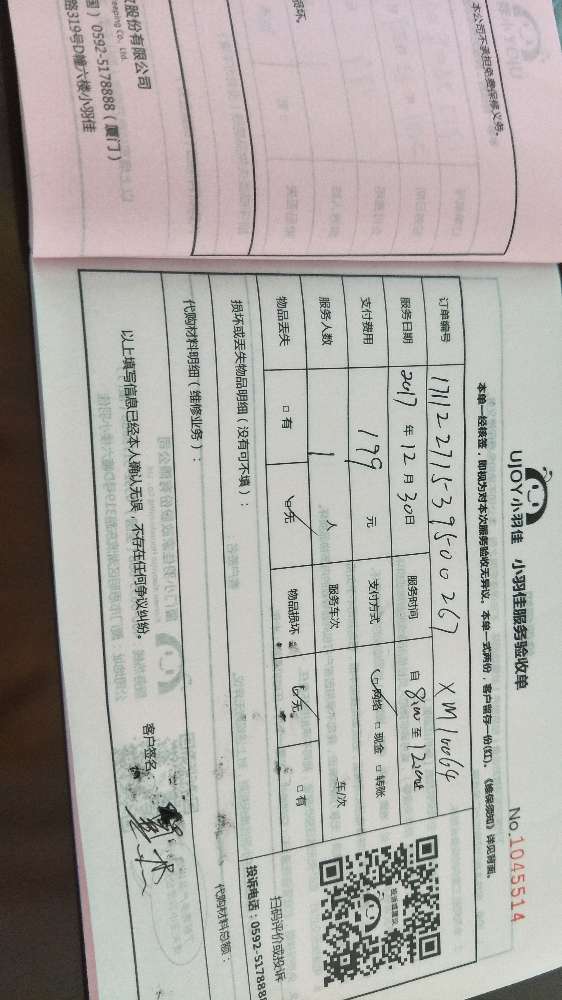 本公司不承担免费保修义务。
损坏。
股份有限公司
eeping Co., Ltd.
0592-5178888（厦门）
路319号D幢六楼小羽佳
UJOY小羽佳 小羽佳服务验收单
No.1045514
本单一经核签，即视为对本次服务验收无异议。本单一式两份，客户留存一份(红)。《维保须知》详见背面。
订单编号 17122771539500267 XM10064
服务日期 2017年12月30日 服务时间 自8:00至12:00
支付费用 199元 支付方式 网络 现金 转账
服务人数 1人 服务车次 车/次
物品丢失 有 无 物品损坏 无 有
扫码评价或投诉
投诉电话:0592-517888
损坏或丢失物品明细（没有可不填）：
代购材料明细（维修业务）： 代购材料总额：
以上填写信息已经本人确认无误，不存在任何争议纠纷。 客户签名